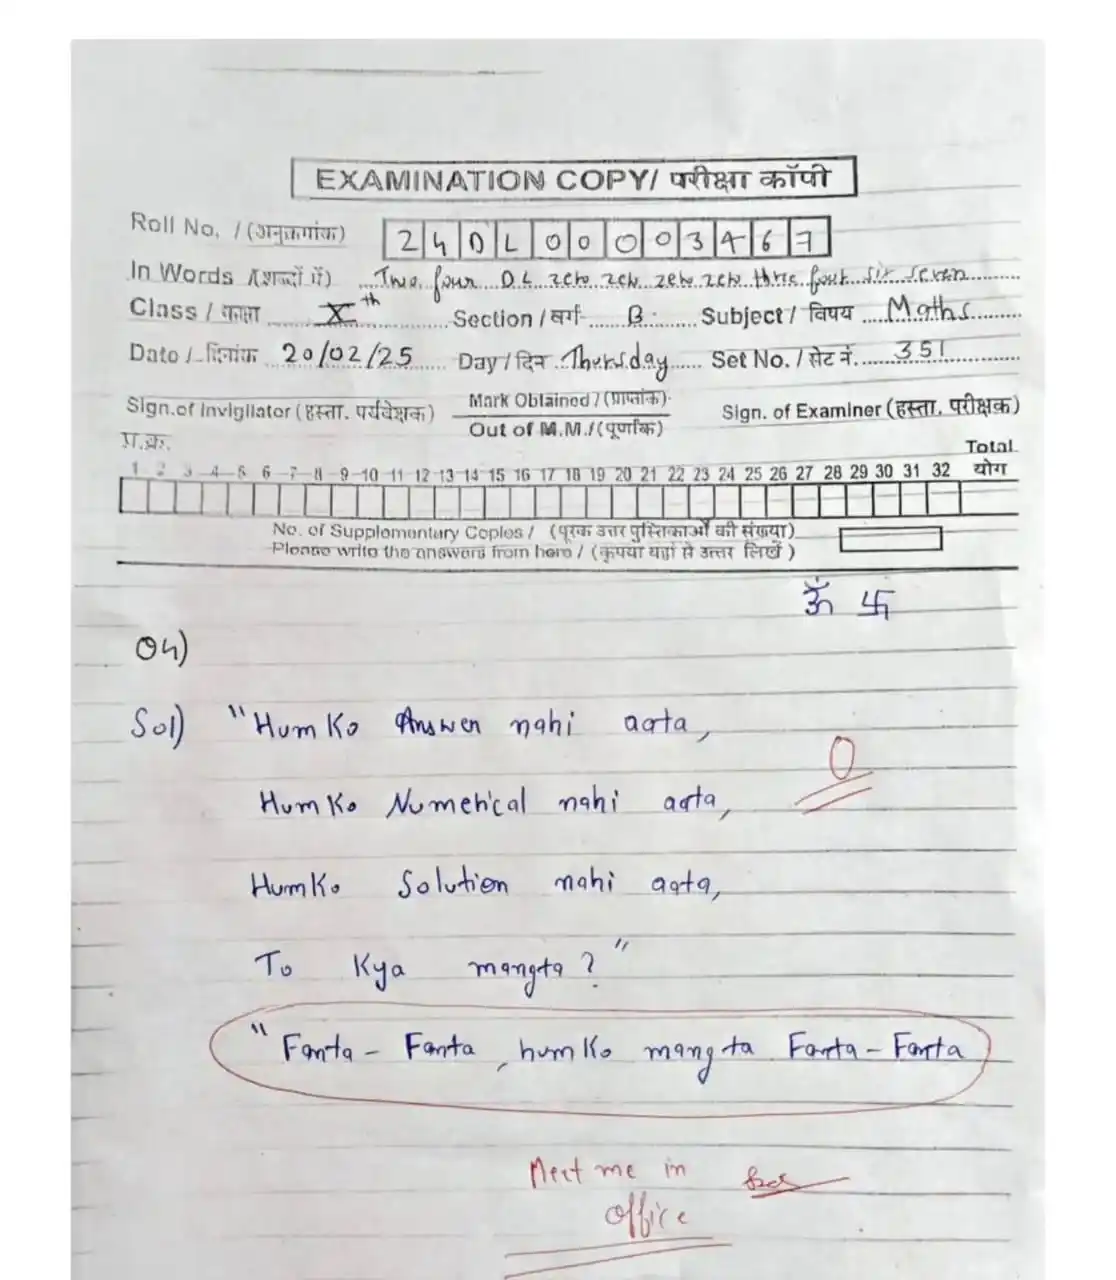 EXAMINATION COPY/ परीक्षा कॉपी
Roll No. / (अनुक्रमांक) 24DL00003467
In Words /(शब्दों में) Two four DL zero zero zero zero three four six seven
Class / कक्षा Xth Section / वर्ग B Subject / विषय Maths
Date / दिनांक 20/02/25 Day / दिन Thursday Set No. / सेट नं. 351
Sign.of Invigilator (हस्ता. पर्यवेक्षक) Mark Obtained / (प्राप्तांक) Sign. of Examiner (हस्ता. परीक्षक)
Out of M.M./(पूर्णांक)
प्र.क्र. Total
1 2 3 4 5 6 7 8 9 10 11 12 13 14 15 16 17 18 19 20 21 22 23 24 25 26 27 28 29 30 31 32 योग
No. of Supplementary Copies / (पूरक उत्तर पुस्तिकाओं की संख्या)
Please write the answers from here / (कृपया यहाँ से उत्तर लिखें )
ॐ 卐
04)
Sol) "Humko Answer nahi aata,
0
Humko Numerical nahi aata,
Humko Solution nahi aata,
To Kya mangta ?"
"Fanta - Fanta, humko mangta Fanta - Fanta
Meet me in
office